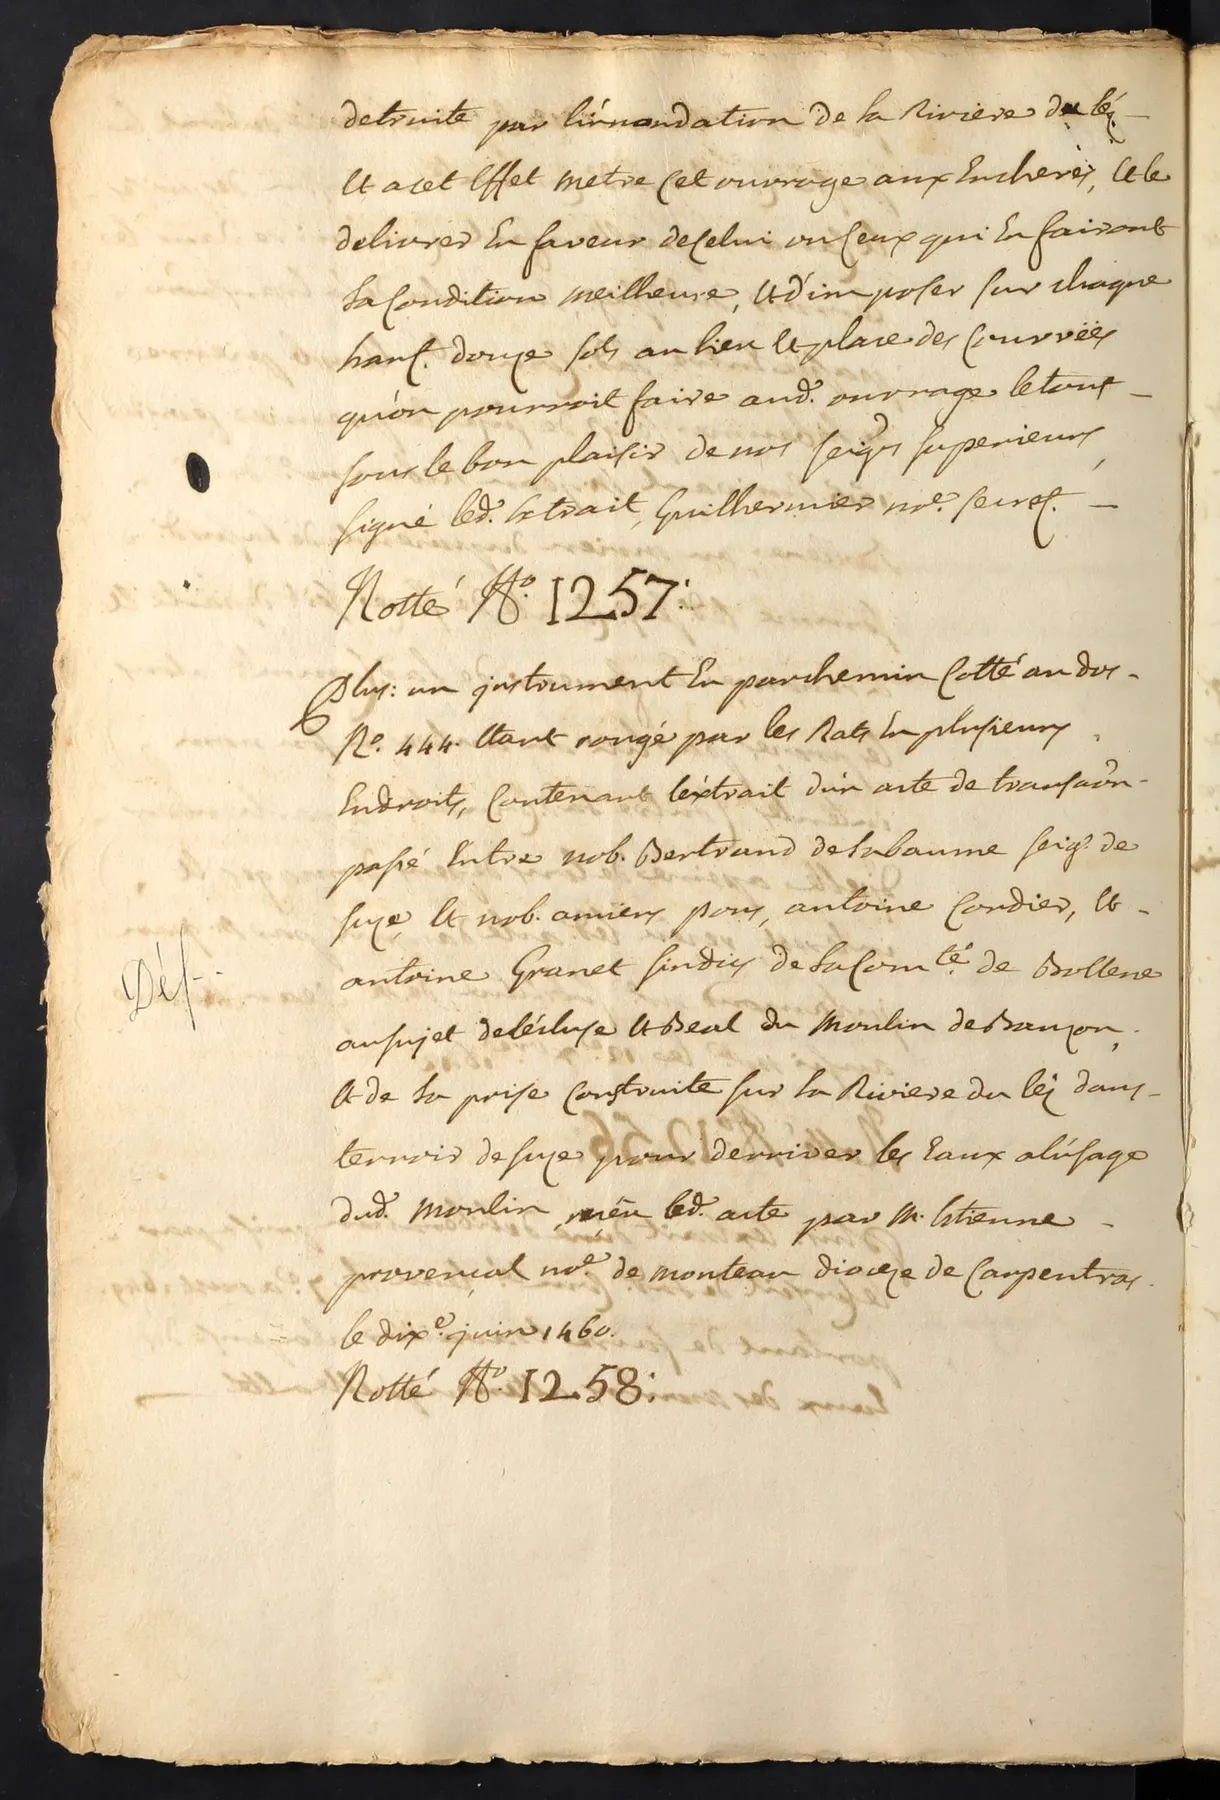 detruite par l'innondation de la Riviere du léz
Et acet Effet metre cet ouvrage aux Encheres, Et le
delivrer En faveur decelui ou ceux qui En fairont
la Condition meilheure, Et d'imposer sur chaque
douze sols au lieu Et place des Courvées
qu'on pourroit faire aud. ouvrage le tout
sous le bon plaisir de nos seigrs superieurs,
signé led. Extrait, Guilhermier nore. secret.
Notté No. 1257.
Plus: un jnstrument En parchemin Cotté au dos
No. 444. Etant rongé par les Rats En plusieurs
Endroits, Contenant l'éxtrait d'un acte de transaon
passé Entre nob. Bertrand de labaume seigr. de
suze Et nob. amiers pons, antoine Cordier, Et
antoine Granet sindics de la Comté. de Bollene
ausujet de l'écluse Et Beal du Moulin de Bauzon,
Et de la prise Construite sur la Riviere du léz dans
terroir de suze pour derriver les Eaux al'usage
dud. Moulin, led. acte par M. Etienne
provençal nore. de monteau dioceze de Carpentras
le dixe. juin 1460.
Notté No. 1258.